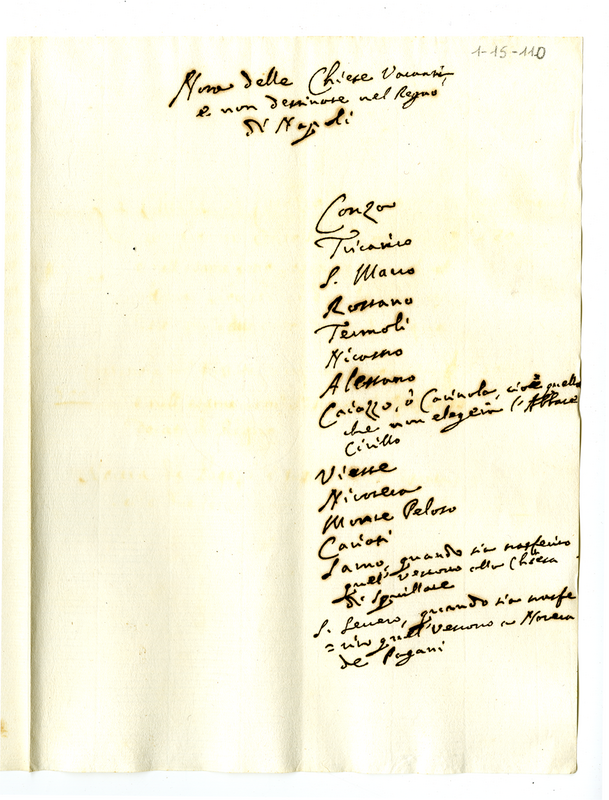 1-15-110
Nota delle Chiese Vacanti,
e non destinate nel Regno
di Napoli
Conza
Tricarico
S. Marco
Rossano
Termoli
Nicastro
Alessano
Caiazzo, ò Carinola, cioè quella
che non elegerà l'Abbate
Cirillo
Vieste
Nicotera
Monte Peloso
Cariati
quando sia trasferito
quel Vescovo alla Chiesa
di Squillace
S. Severo, quando sia trasfe
=rito quel Vescovo a Nocera
de Pagani